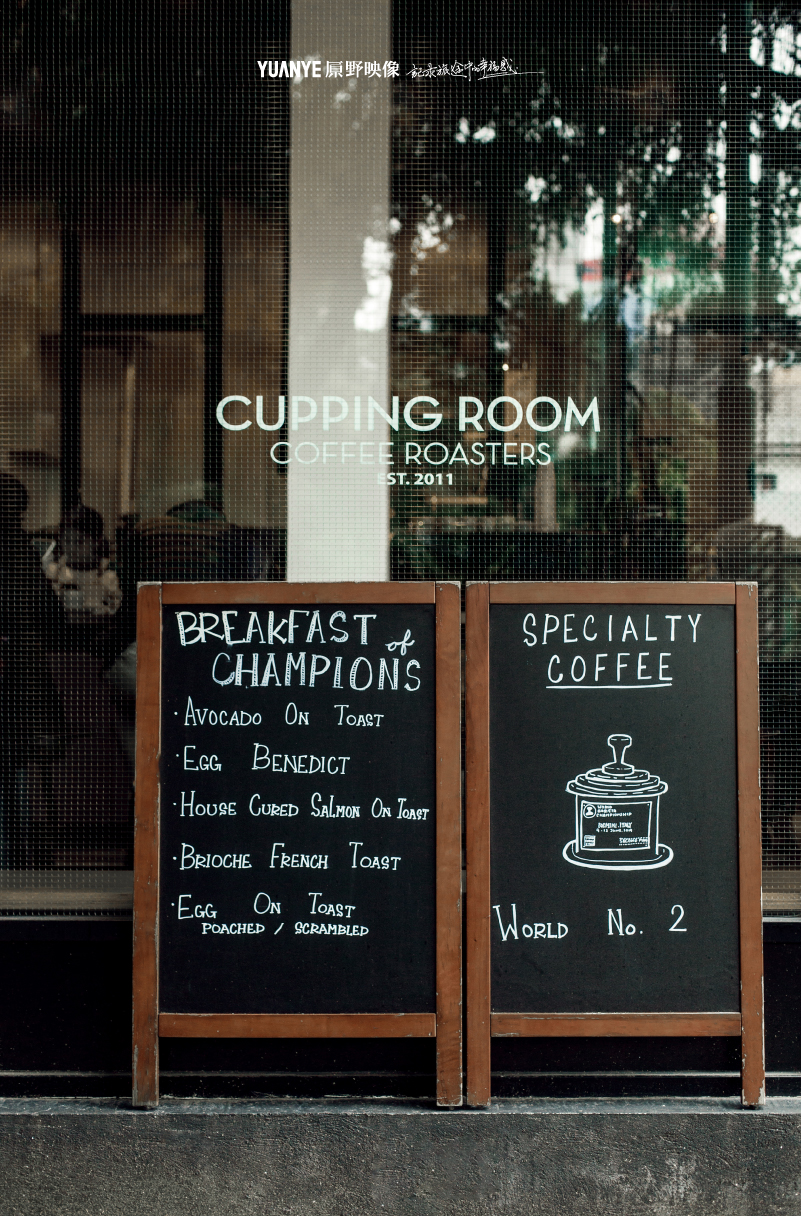 YUANYE 原野映像 记录旅途中的幸福感
CUPPING ROOM
COFFEE ROASTERS
EST. 2011
BREAKFAST of
CHAMPIONS
· AVOCADO ON TOAST
· EGG BENEDICT
· HOUSE CURED SALMON ON TOAST
· BRIOCHE FRENCH TOAST
· EGG ON TOAST
POACHED / SCRAMBLED
SPECIALTY
COFFEE
WORLD
BARISTA
CHAMPIONSHIP
RIMINI, ITALY
WORLD No. 2